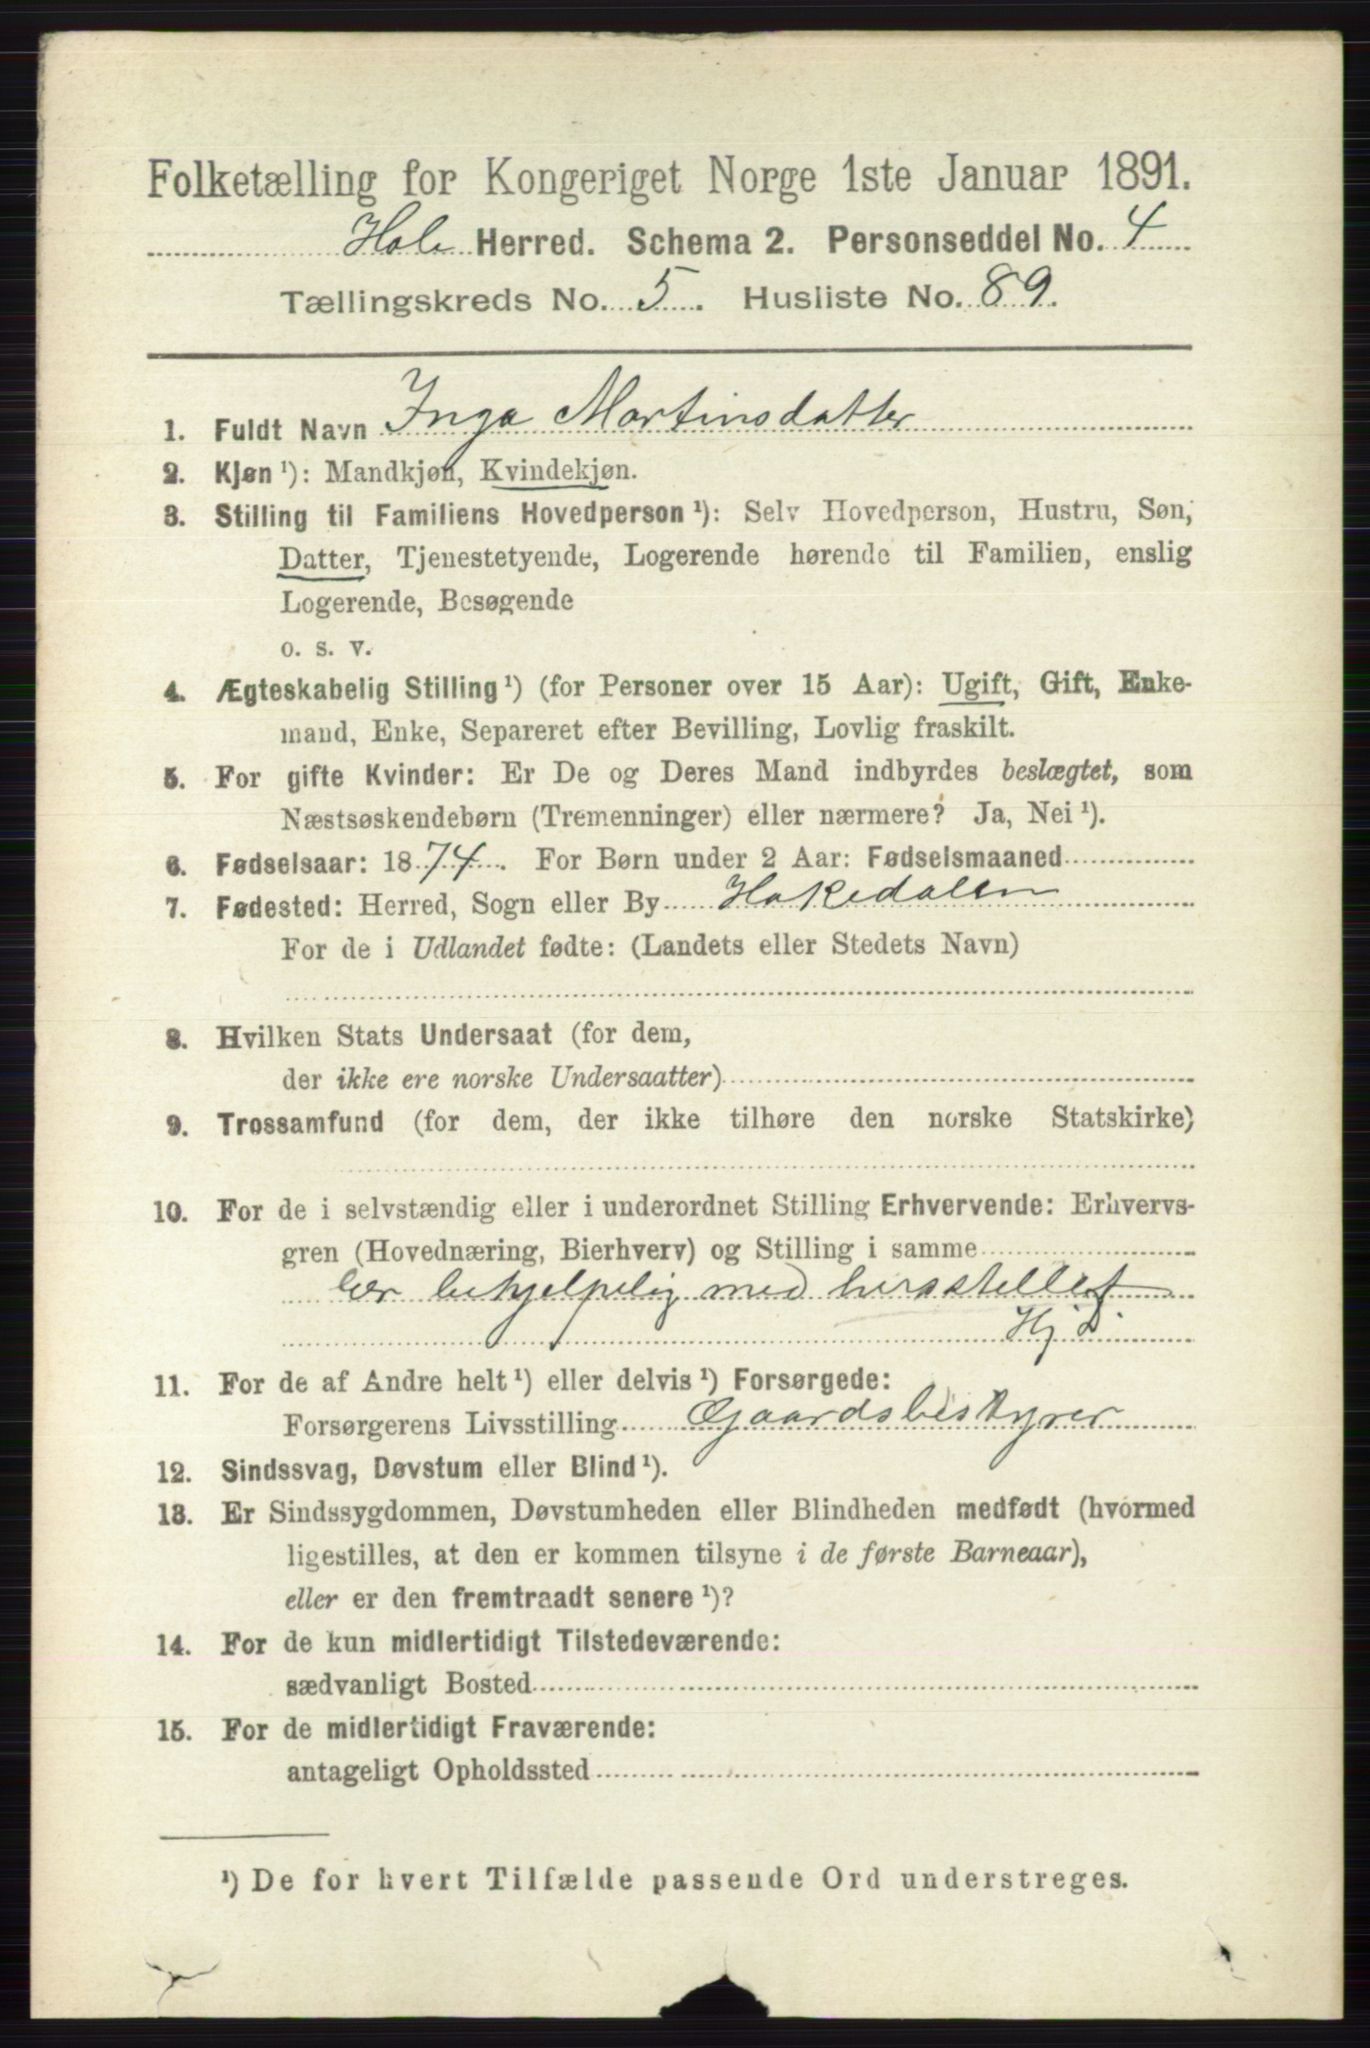 Folketælling for Kongeriget Norge 1ste Januar 1891.
Hole Herred. Schema 2. Personseddel No. 4
Tællingskreds No. 5. Husliste No. 89.
1. Fuldt Navn Inga Martinsdatter
2. Kjøn ¹): Mandkjøn, Kvindekjøn.
3. Stilling til Familiens Hovedperson ¹): Selv Hovedperson, Hustru, Søn,
Datter, Tjenestetyende, Logerende hørende til Familien, enslig
Logerende, Besøgende
o. s. v.
4. Ægteskabelig Stilling ¹) (for Personer over 15 Aar): Ugift, Gift, Enke-
mand, Enke, Separeret efter Bevilling, Lovlig fraskilt.
5. For gifte Kvinder: Er De og Deres Mand indbyrdes beslægtet, som
Næstsøskendebørn (Tremenninger) eller nærmere? Ja, Nei ¹).
6. Fødselsaar: 1874. For Børn under 2 Aar: Fødselsmaaned
7. Fødested: Herred, Sogn eller By Hakedalen
For de i Udlandet fødte: (Landets eller Stedets Navn)
8. Hvilken Stats Undersaat (for dem,
der ikke ere norske Undersaatter)
9. Trossamfund (for dem, der ikke tilhøre den norske Statskirke)
10. For de i selvstændig eller i underordnet Stilling Erhvervende: Erhvervs-
gren (Hovednæring, Bierhverv) og Stilling i samme
Er behjelpelig med husstellet
Hj D
11. For de af Andre helt ¹) eller delvis ¹) Forsørgede:
Forsørgerens Livsstilling Gaardsbestyrer
12. Sindssvag, Døvstum eller Blind ¹).
13. Er Sindssygdommen, Døvstumheden eller Blindheden medfødt (hvormed
ligestilles, at den er kommen tilsyne i de første Barneaar),
eller er den fremtraadt senere ¹)?
14. For de kun midlertidigt Tilstedeværende:
sædvanligt Bosted
15. For de midlertidigt Fraværende:
antageligt Opholdssted
¹) De for hvert Tilfælde passende Ord understreges.